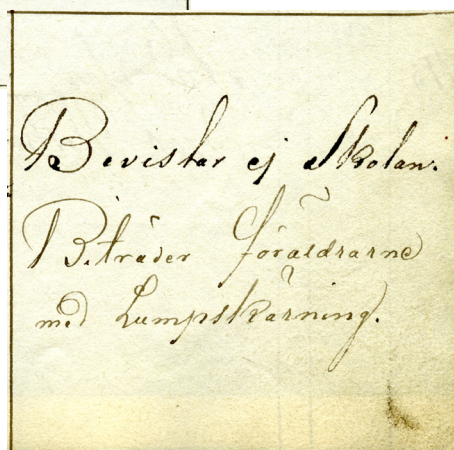 Bevistar ej Skolan.
Biträder föräldrarne
med Lumpskärning.